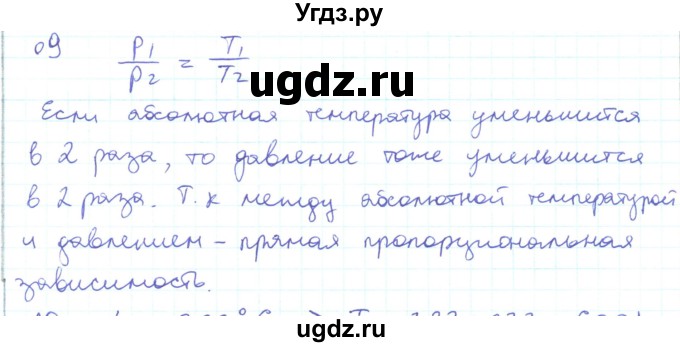 Угдз.ру
09 P1/P2 = T1/T2
ugdz.ru
Если абсолютная температура уменьшится
в 2 раза, то давление тоже уменьшится
в 2 раза. Т.к между абсолютной температурой
и давлением – прямая пропорциональная
зависимость.
ugdz.ru